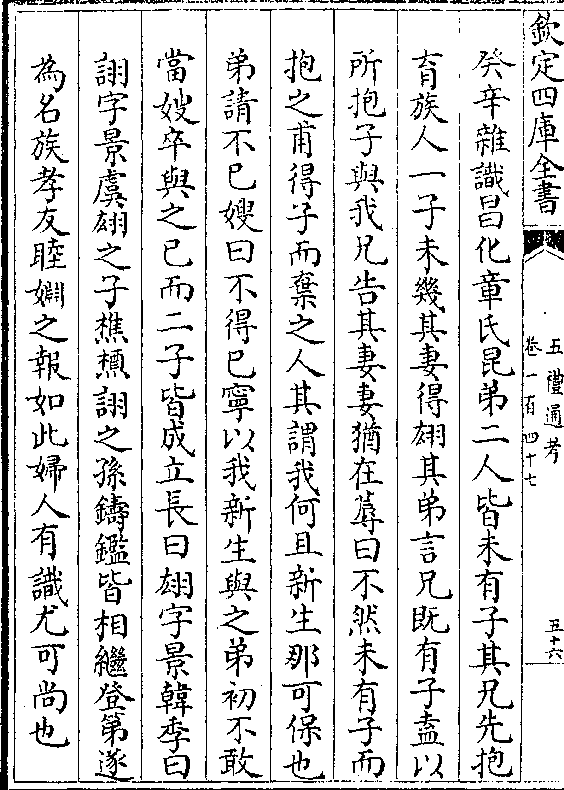 欽定四庫全書
五禮通考
卷一百四十七
五十六
癸辛雜識昌化章氏昆弟二人皆未有子其兄先抱
育族人一子未幾其妻得翃其弟言兄既有子盍以
所抱子與我兄告其妻妻猶在蓐曰不然未有子而
抱之甫得子而棄之人其謂我何且新生那可保也
弟請不已嫂曰不得已寧以我新生與之弟初不敢
當嫂卒與之已而二子皆成立長曰翃字景韓季曰
詡字景虞翃之子樵槱詡之孫鑄鑑皆相繼登第遂
為名族孝友睦婣之報如此婦人有識尤可尚也